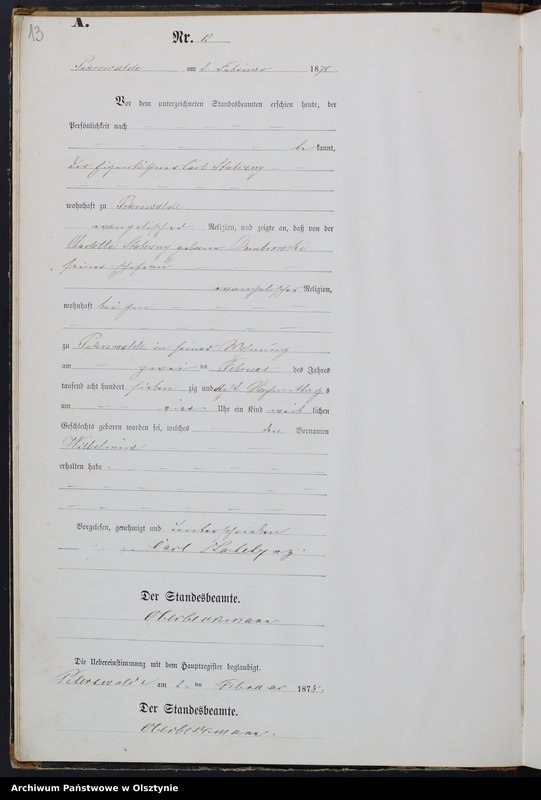 13
A.
Nr. 12
Peterswalde am 2 Februar 1878
Vor dem unterzeichneten Standesbeamten erschien heute, der
Persönlichkeit nach
be kannt,
der Eigenkäthner Carl
wohnhaft zu Peterswalde
evangelischer Religion, und zeigte an, daß von der
Charlotte geborne Dombrowski
seiner Ehefrau
evangelischer Religion,
wohnhaft bei ihm
zu Peterswalde in seiner Wohnung
am zwei ten Februar des Jahres
tausend acht hundert sieben zig und acht Nachmittag s
um vier Uhr ein Kind weib lichen
Geschlechts geboren worden sei, welches den Vornamen
Wilhelmine
erhalten habe.
Vorgelesen, genehmigt und unterschrieben
Carl
Der Standesbeamte.
Die Uebereinstimmung mit dem Hauptregister beglaubigt.
Peterswalde am 2. ten Februar 1878.
Der Standesbeamte.
Archiwum Państwowe w Olsztynie